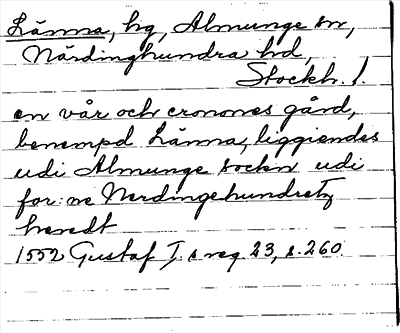 Länna, hg, Almunge sn,
Närdinghundra hd,
Stockh. l.
en vår och cronones gård,
benempd Länna, liggiendes
udi Almunge sockn udi
for:ne Nerdingehundretz
heredt
1552 Gustaf I:s reg 23, s. 260.